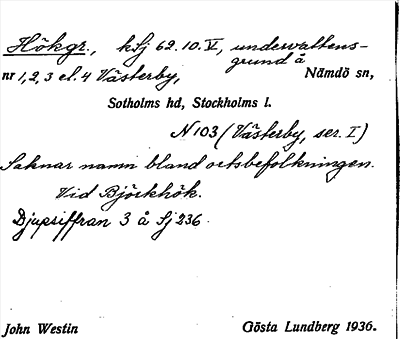 Hökgr., kSj 62.10.V, undervattens-
grund å
nr 1,2,3 el. 4 Västerby, Nämdö sn,
Sotholms hd, Stockholms l.
N 103 (Västerby, ser. I)
Saknar namn bland ortsbefolkningen.
Vid Björkhök.
Djupsiffran 3 å Sj 236.
John Westin Gösta Lundberg 1936.